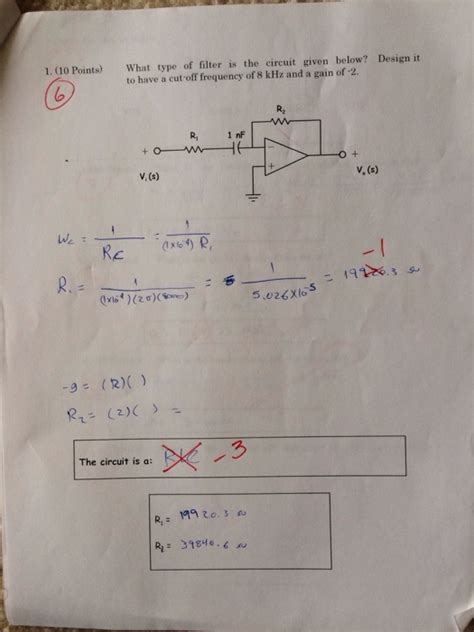 1. (10 Points) What type of filter is the circuit given below? Design it
to have a cut-off frequency of 8 kHz and a gain of -2.
6
R₂
R₁ 1 nF
+ - + +
Vᵢ(s) Vₒ(s)
-1
Wc = 1 / R₁C = 1 / (1x10⁻⁹) R₁
R₁ = 1 / (1x10⁻⁹)(2π)(8000) = 1 / 5.026x10⁻⁵ = 19920.3 Ω
-g = (R)( )
R₂ = (2)( ) =
The circuit is a: -3
R₁ = 19920.3 Ω
R₂ = 39840.6 Ω